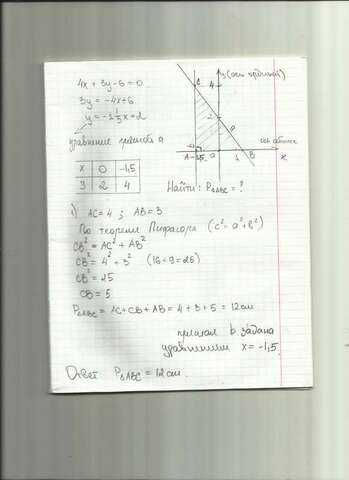 4x + 3y - 6 = 0
3y = -4x+6
y = -1 1/3 x + 2
уравнение прямой a
x 0 -1,5
y 2 4
y (ось ординат)
C
4
2
a
ось абсцисс
A -1,5
0
1
B
x
Найти: P△ABC = ?
1) AC = 4 ; AB = 3
По теореме Пифагора (c² = a² + b²)
CB² = AC² + AB²
CB² = 4² + 3² (16 + 9 = 25)
CB² = 25
CB = 5
P△ABC = AC + CB + AB = 4 + 3 + 5 = 12 см
прямая b задана
уравнением x = -1,5.
Ответ P△ABC = 12 см.